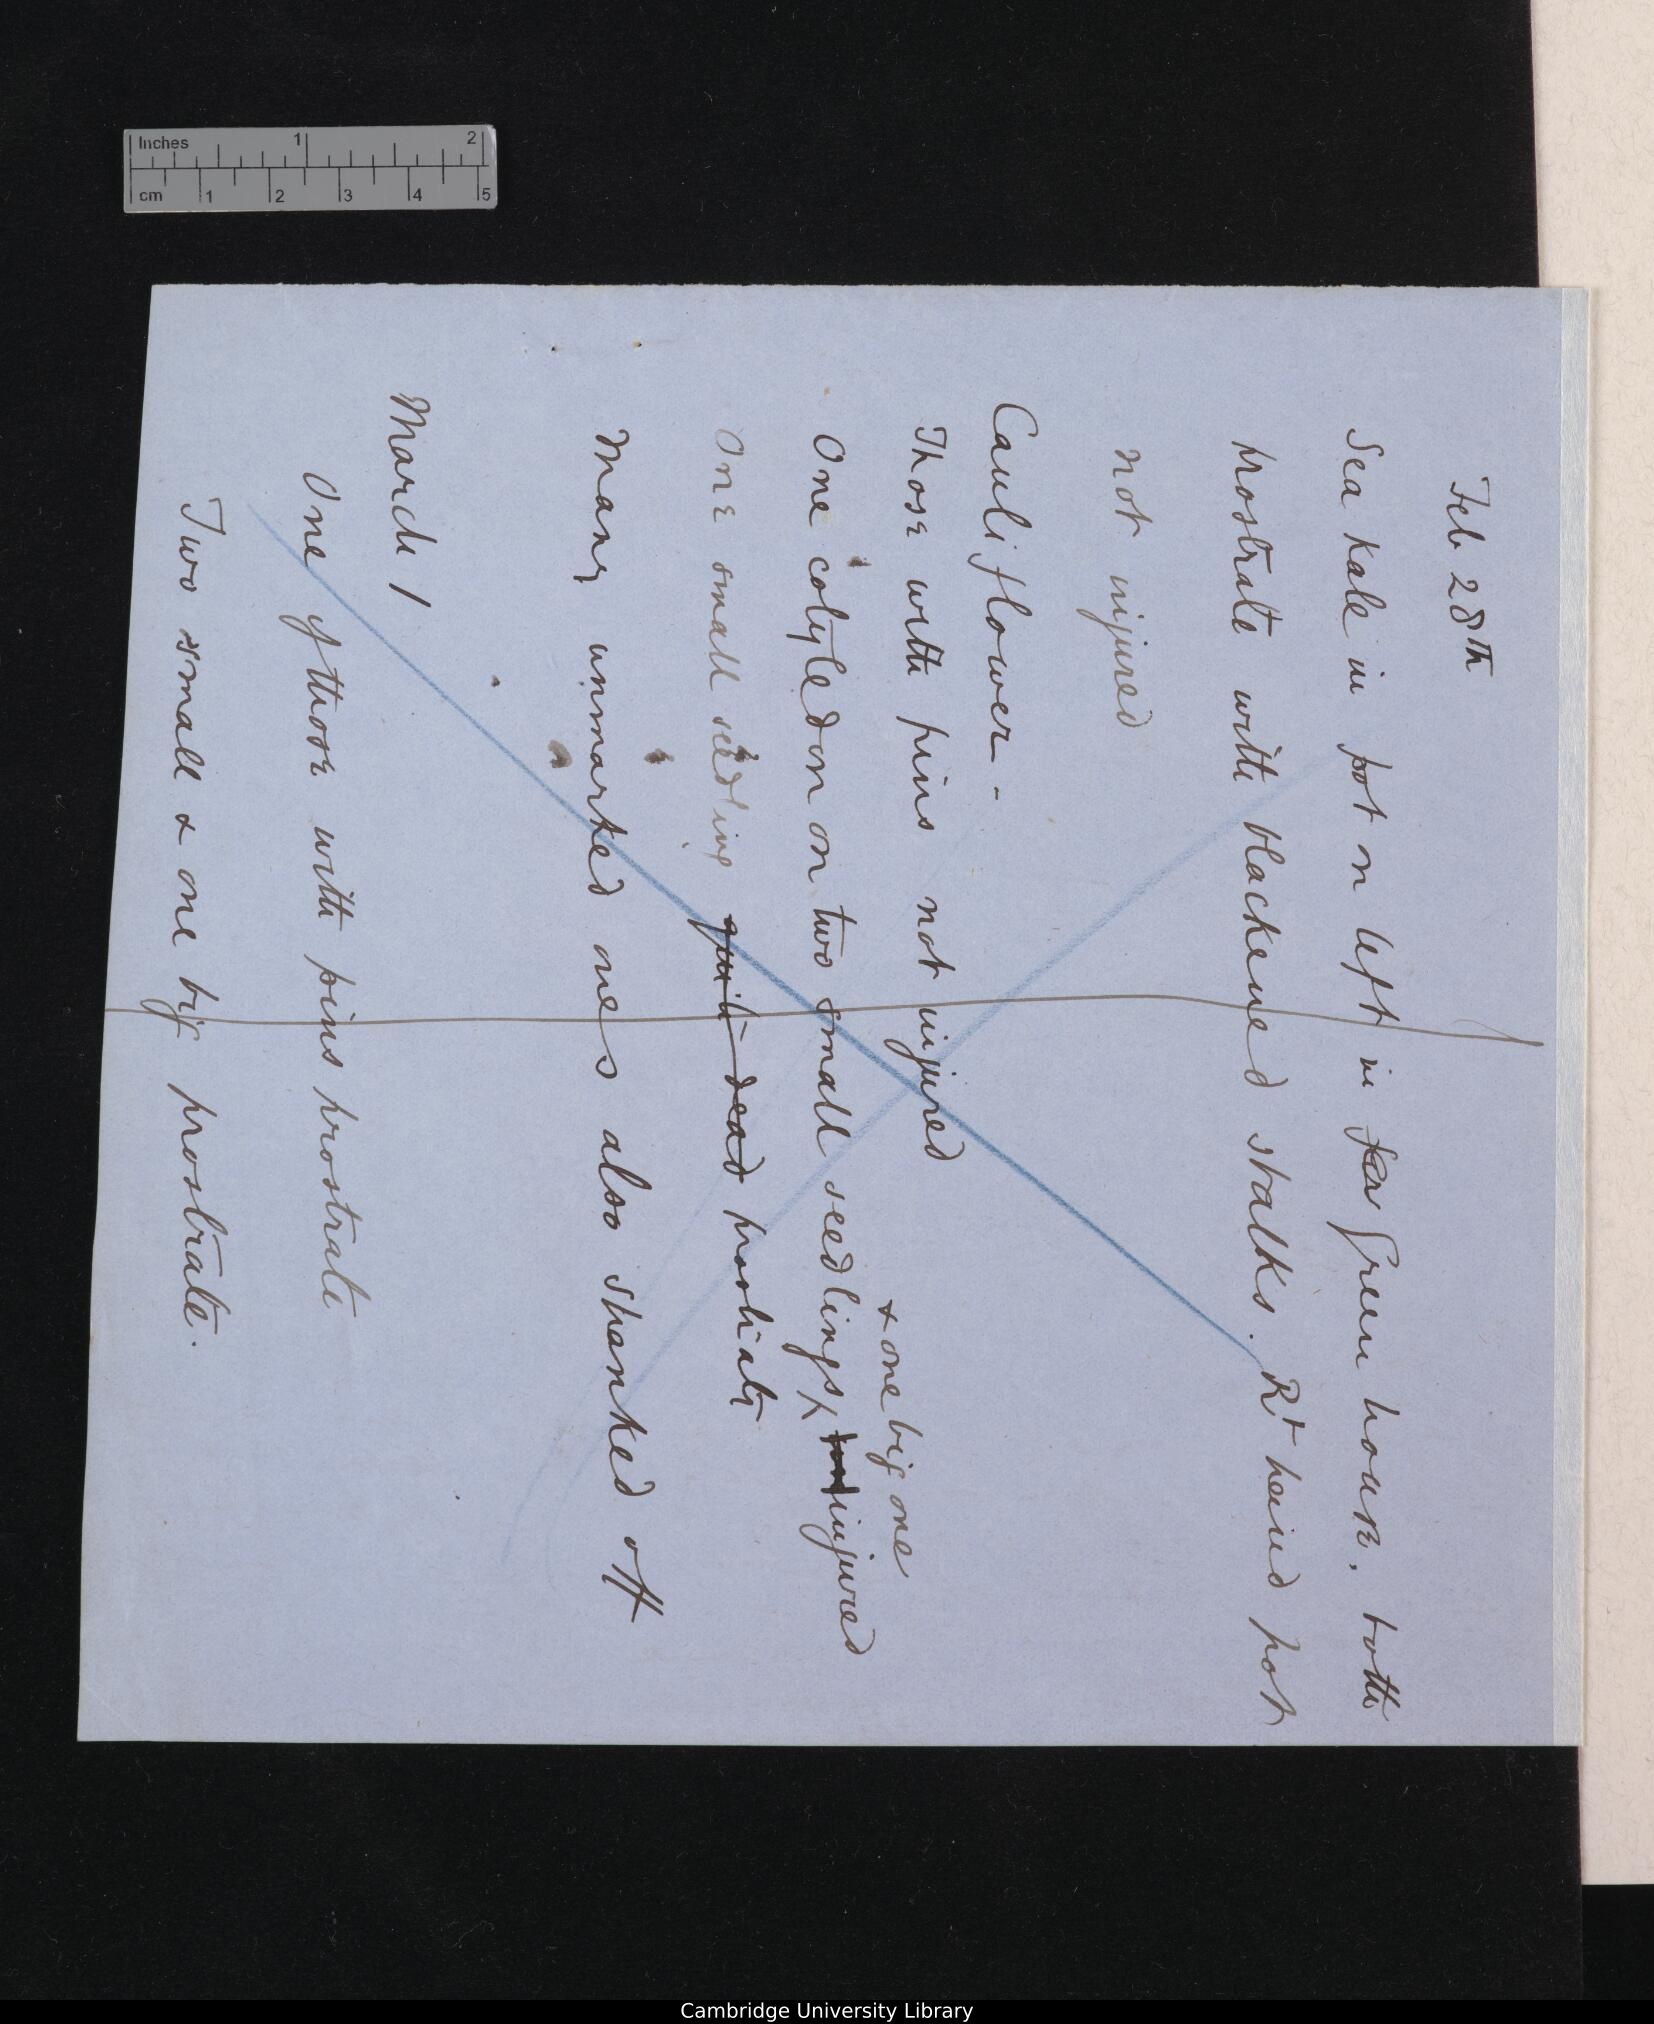 Inches 1 2
cm 1 2 3 4 5
Feb 28th
Sea Kale in pot on left in far Green house, both
prostrate with blackened stalks. Rt hand pot
not injured
Cauliflower -
Those with pins not injured
& one big one
One cotyledon on two small seedlings injured
One small seedling quite dead prostrate
Many unmarked ones also shanked off
March 1
One of those with pins prostrate
Two small & one big prostrate.
Cambridge University Library